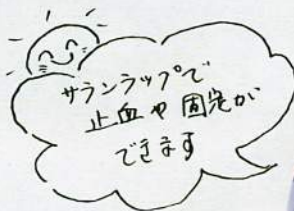 サランラップで
止血や固定が
できます